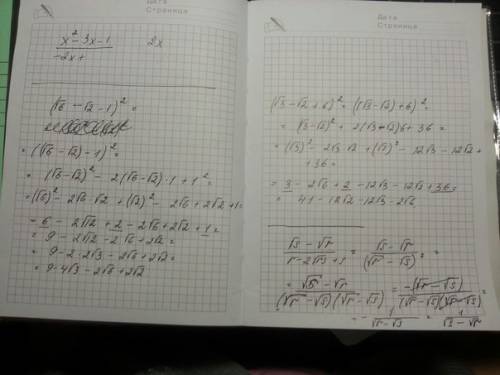 Дата
Страница
x² - 3x - 1
-2x+
2x
(√6 - √2 - 1)² =
= ((√6 - √2) - 1)² =
= (√6 - √2)² - 2(√6 - √2)·1 + 1² =
= (√6)² - 2√6·√2 + (√2)² - 2√6 + 2√2 + 1 =
= 6 - 2√12 + 2 - 2√6 + 2√2 + 1 =
= 9 - 2√12 - 2√6 + 2√2 =
= 9 - 2·2√3 - 2√6 + 2√2 =
= 9 - 4√3 - 2√6 + 2√2
Дата
Страница
(√3 - √2 + 6)² = ((√3 - √2) + 6)² =
= (√3 - √2)² + 2(√3 - √2)6 + 36 =
= (√3)² - 2√3·√2 + (√2)² - 12√3 - 12√2 +
+ 36 =
= 3 - 2√6 + 2 - 12√3 - 12√2 + 36 =
= 41 - 12√2 - 12√3 - 2√6
√s - √r / r - 2√rs + s = √s - √r / (√r - √s)² =
= √s - √r / (√r - √s)(√r - √s) = -(√r - √s) / (√r - √s)(√r - √s) =
= - 1 / √r - √s = 1 / √s - √r